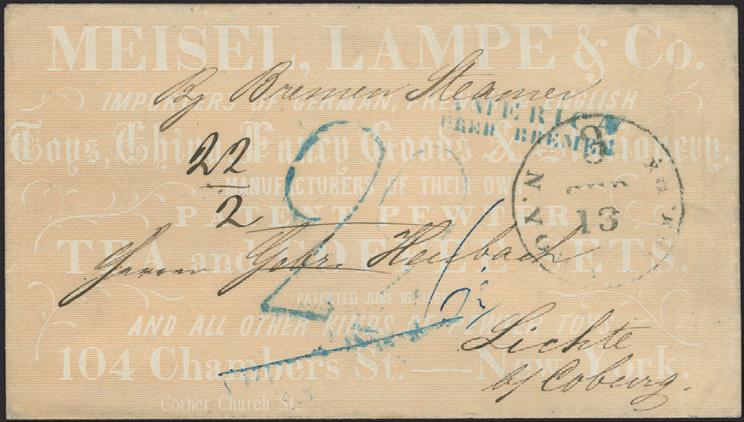 MEISEL, LAMPE & Co.
By Bremen Steamer
IMPORTERS OF GERMAN, FRENCH & ENGLISH
AMERICA
UEBER BREMEN
Toys, China, Fancy Goods &
22
2
MANUFACTURERS OF THEIR OWN
PATENT PEWTER
N. YORK
8
13
TEA and COFFEE SETS,
Herren Gebr. Heubach
PATENTED JUNE
AND ALL OTHER KINDS OF PEWTER TOYS
Lichte
104 Chambers St.—New York.
b/ Coburg.
Corner Church St.